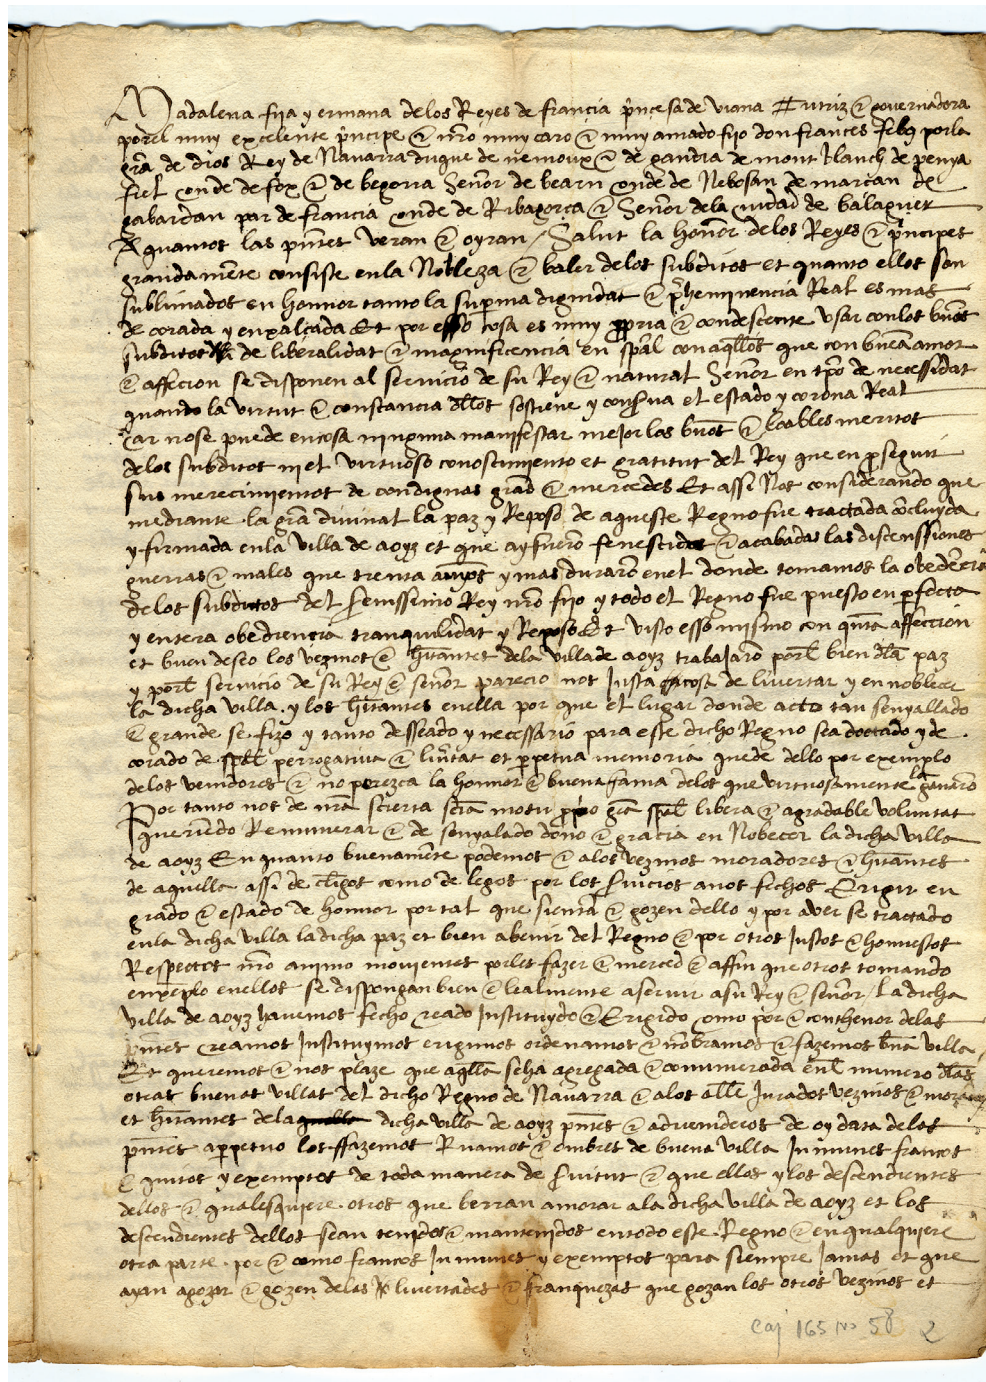 Madalena fija y ermana delos Reyes de francia pncesa de viana tutriz & governadora
porel muy excelente pncipe & nro muy caro & muy amado fijo don frances febus por la
gra de dios Rey de Navarra duque de nemoux & de gandia de mont blanch de penya
fiel conde de fox & de begorra Señor de bearn conde de Nebosan de marcan de
gabardan par de francia conde de Ribagorça & Señor dela ciudad de balaguer
A quantos las pntes veran & oyran / Salut la honor delos Reyes & pncipes
grandamente consiste enla Nobleza & valer delos subditos et quanto ellos son
sublimados en honnor tanto la suprma dignidat & preheminencia Real es mas
de corada y enxalçada Et por esso cosa es muy propria & condescente usar conlos buenos
subditos de liberalidat & magnificencia en spal con aqllos que con buena amor
& affecion se disponen al servicio de su Rey & natural Señor en tpo de necessidat
quando la virtut & constancia dllos sostiene y conserva el estado y corona Real
Car nose puede encosa ninguna manifestar mejor los buenos & loables meritos
delos subditos ni el virtuoso conoscimiento et gratitut del Rey que en proseguir
sus merecimientos de condignas gras & mercedes Et assi Nos considerando que
mediante la gra divinal la paz y Reposo de aqueste Regno fue tractada concluyda
y firmada enla villa de aoyz et que ay fuero fenescidas & acabadas las discenssiones
guerras & males que trenta anyos y mas duraro enel donde tomamos la obediencia
delos subditos del Serenissimo Rey nro fijo y todo el Regno fue puesto en perfecta
y entera obediencia tranquilidat y Reposo Et visto esso mismo con qnta affeccion
et buen deseo los vezinos & habitantes dela villa de aoyz trabajaro porel bien dla paz
y porel servicio de su Rey & señor parecio nos Justa cosa de livertar y ennoblecer
la dicha villa y los habitantes enella por que el lugar donde acto tan senyallado
& grande se fizo y tanto desseado y necessario para este dicho Regno sea doctado y de
corado de spal perrogativa & livertat et perpetua memoria quede dello por exemplo
delos venidores & no perezca la honnor & buena fama delos que virtuosamente ganaro
Por tanto nos de nra scierta scia motu proprio gra spal libera & agradable voluntat
queriendo Remunerar & de senyalado dono & gracia en Nobecer la dicha villa
de aoyz En quanto buenamente podemos & alos vezinos moradores & habitantes
de aquella assi de clligos como de legos por los servicios anos fechos Erigir en
grado & estado de honnor por tal que sienta & gozen dello y por aver se tractado
enla dicha villa la dicha paz et bien abenir del Regno & por otros Justos & honnestos
Respectos nro animo movientes porles fazer & merced & affin que otros tomando
enxenplo enellos se dispongan bien & lealmente aservir asu Rey & señor / La dicha
villa de aoyz havemos fecho creado Instituydo & Erigido como por & conthenor delas
pntes creamos Instituymos erigimos ordenamos & nobramos & fazemos buena villa
Et queremos & nos plaze que aqlla seha agregada & connumerada enel numero dlas
otras buenas villas del dicho Regno de Navarra & alos alld Jurados vezinos & moradores
et habitantes dela dicha villa de aoyz pntes & advenideros de oy data delas
pntes aperpetuo los ffazemos Ruanos & onbres de buena villa Inmunes francos
& quitos y exemptos de toda manera de servitut & que ellos y los descendientes
dellos & qualesquiere otros que berran amorar ala dicha villa de aoyz et los
descendientes dellos sean tenidos & mantenidos entodo este Regno & en qualquiere
otra parte por & como francos Inmunes y exemptos para siempre jamas et que
ayan agozar & gozen delas livertades & franquezas que gozan los otros vezinos et
caj 165 No 58 2